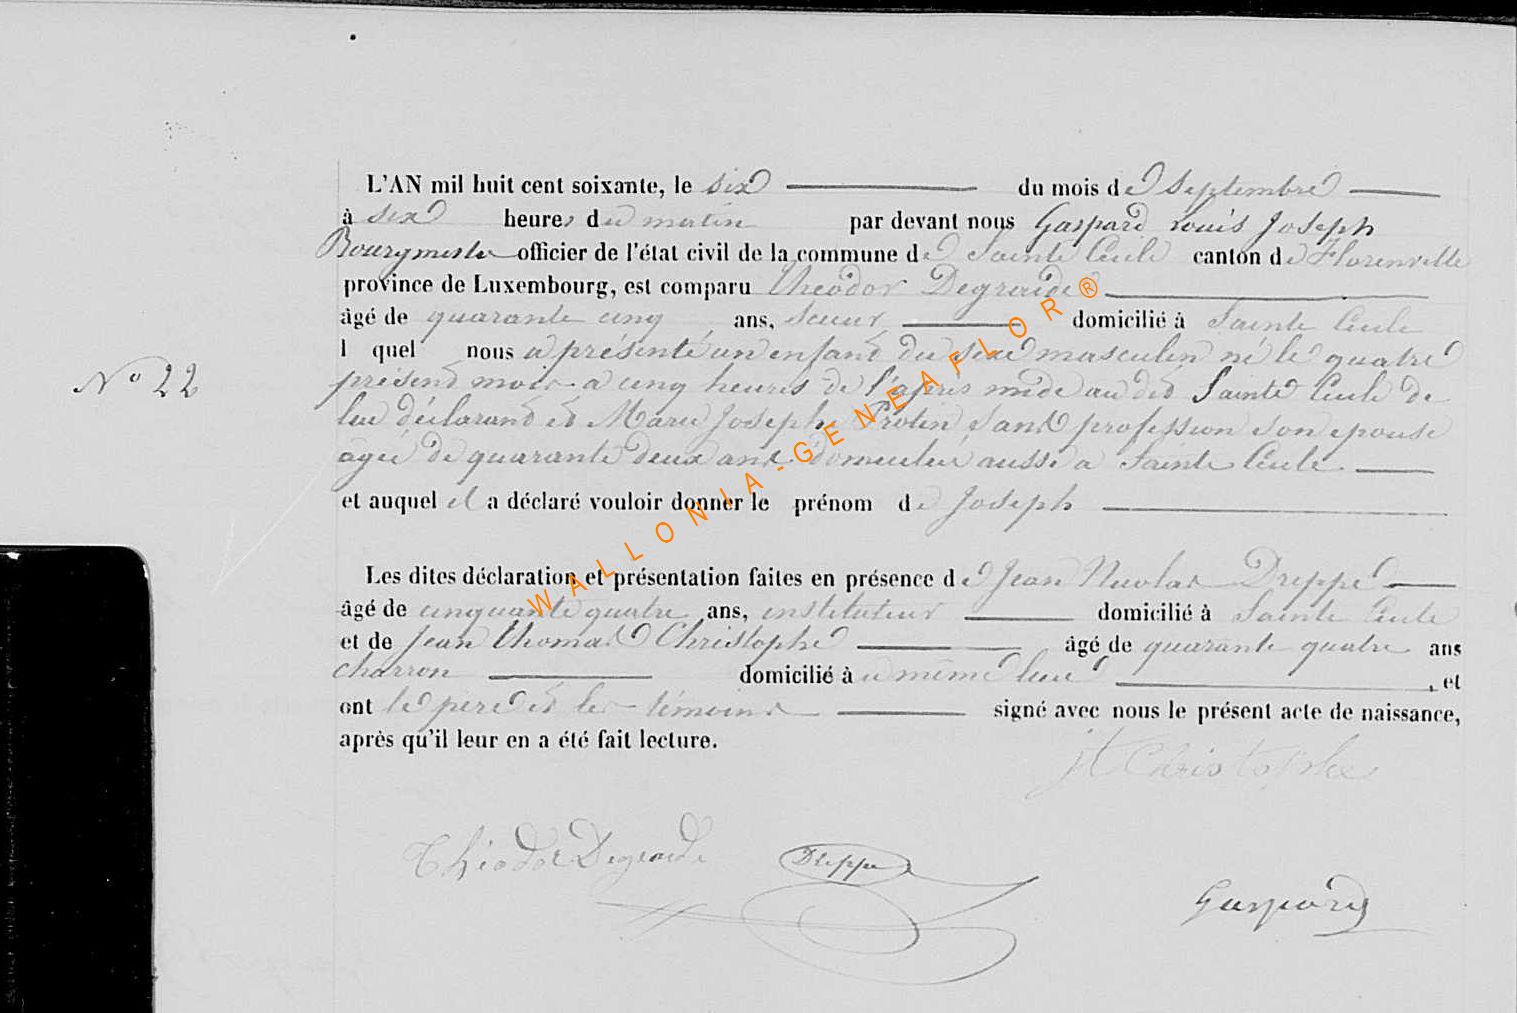 L'AN mil huit cent soixante, le six du mois de Septembre
à six heures du matin par devant nous Gaspard Louis Joseph
Bourgmestre officier de l'état civil de la commune de Sainte Cécile canton de Florenville
province de Luxembourg, est comparu Théodor Degraide
âgé de quarante cinq ans, scieur domicilié à Sainte Cécile
l quel nous a présenté un enfant du sexe masculin né le quatre
N° 22
présent mois a cinq heures de l'après midi au dit Sainte Cécile de
lui déclarant et Marie Joseph Protin sans profession son épouse
âgée de quarante deux ans domiciliée aussi a Sainte Cécile
et auquel il a déclaré vouloir donner le prénom de Joseph
Les dites déclaration et présentation faites en présence de Jean Nicolas Dreppe
âgé de cinquante quatre ans, instituteur domicilié à Sainte Cécile
et de Jean Thomas Christophe âgé de quarante quatre ans
charron domicilié à u même lieu, et
ont le père et les témoins signé avec nous le présent acte de naissance,
après qu'il leur en a été fait lecture.
jt Christophe
Théodor Degraide Dreppe
Gaspard
WALLONIA-GENEAFLOR®